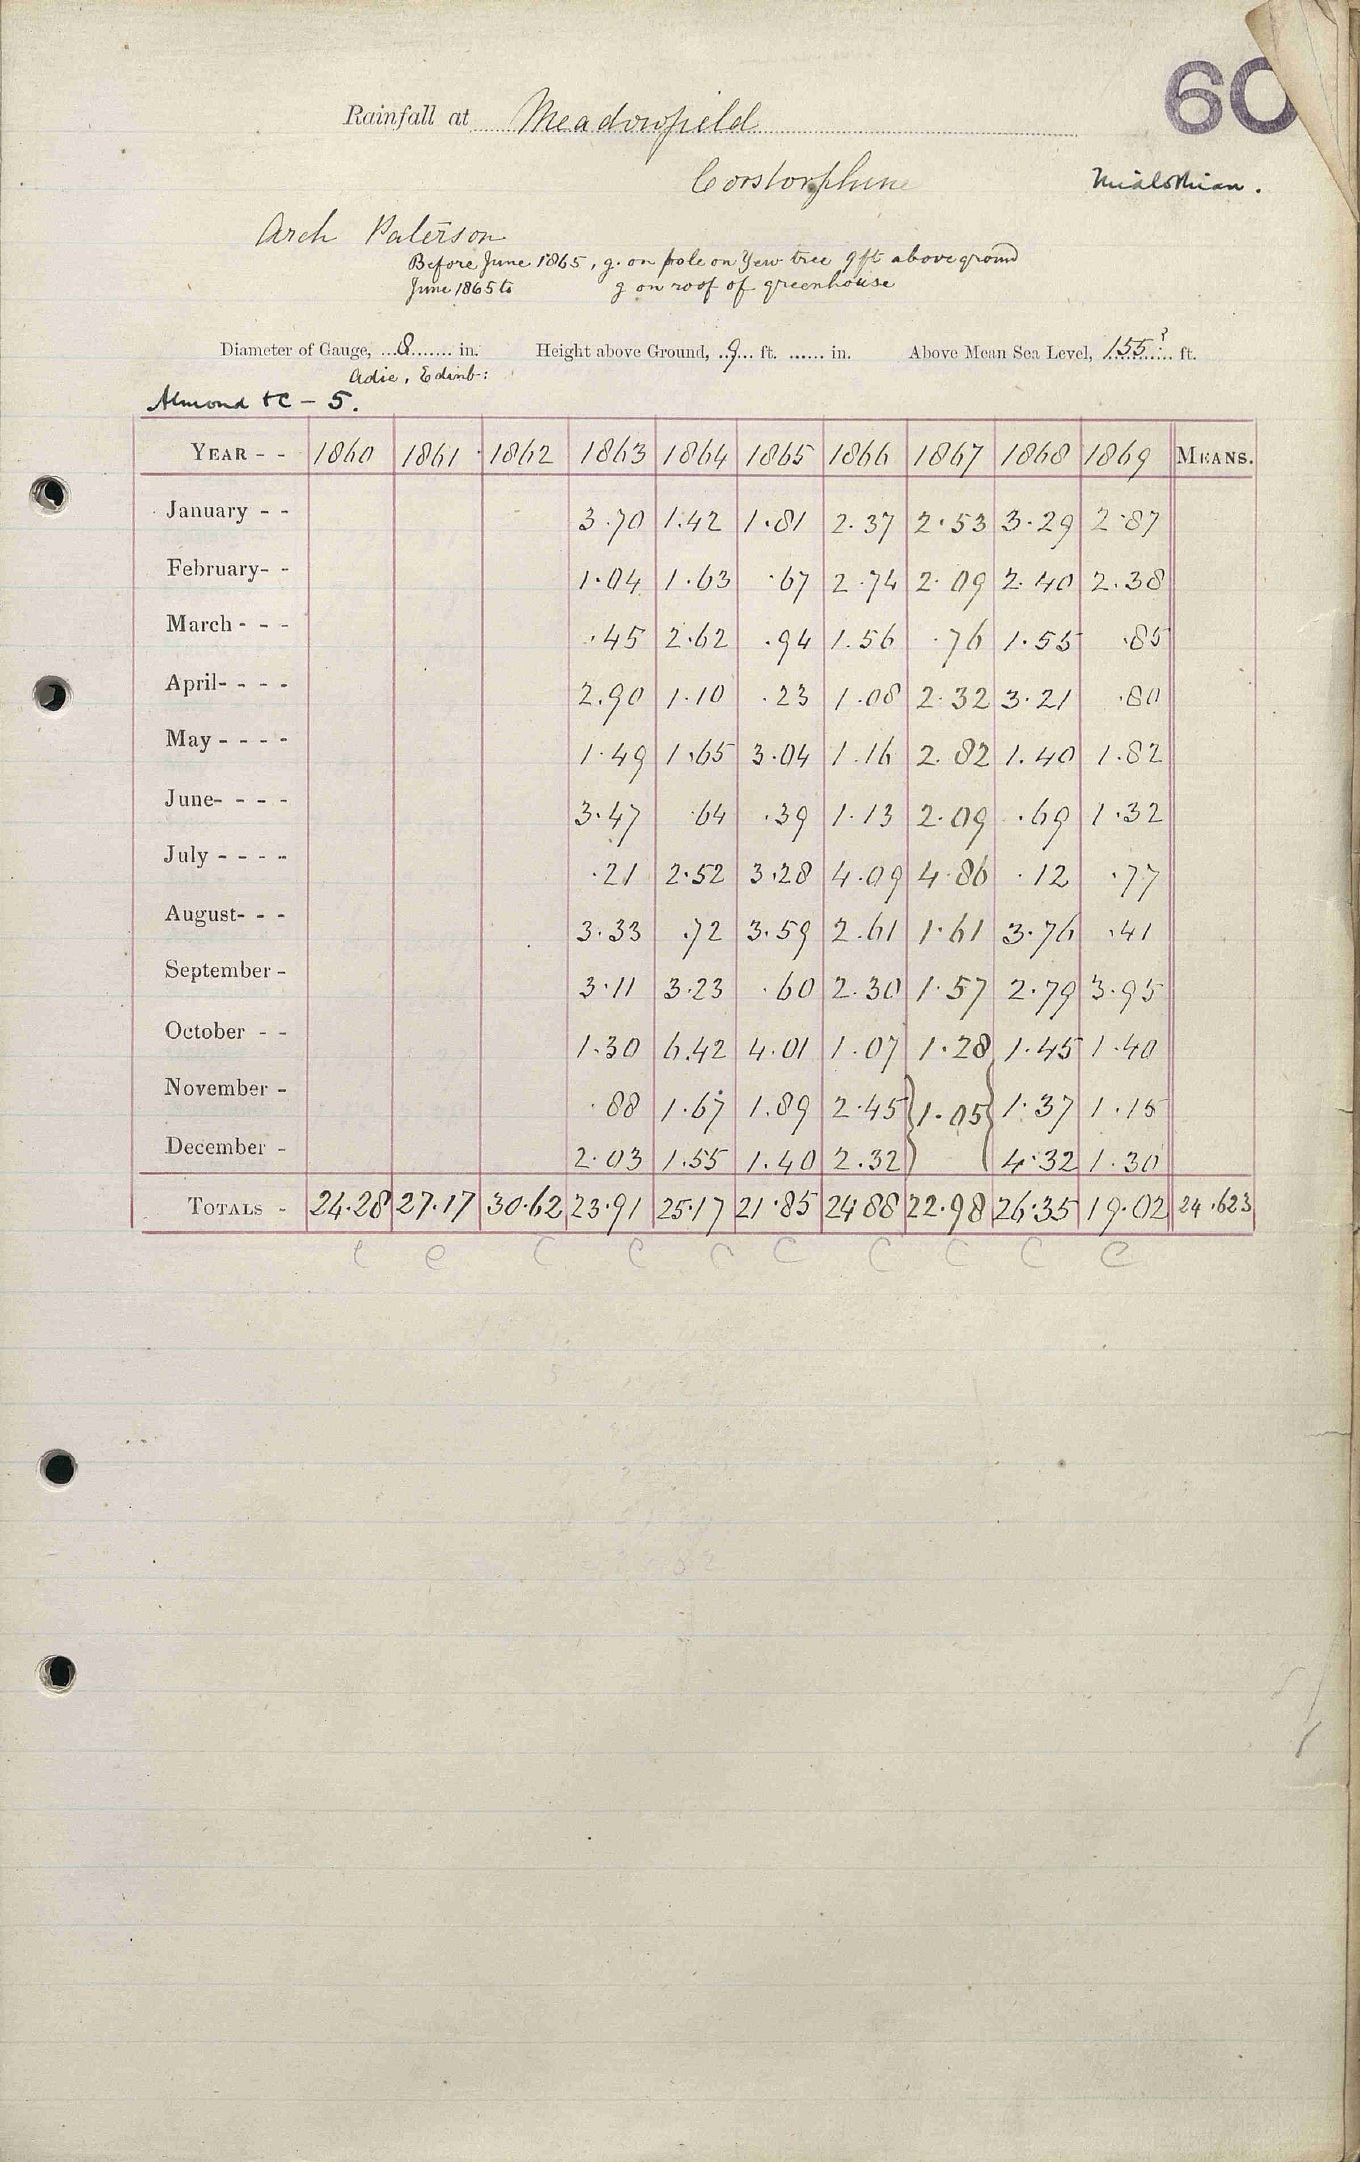 60
Rainfall at Meadowfield
Corstorphine Midlothian.
Arch Paterson
Before June 1865, g. on pole on Yew tree 9ft above ground
June 1865 to g on roof of greenhouse
Diameter of Gauge, 8 in. Height above Ground, 9 ft. ...... in. Above Mean Sea Level, 155? ft.
Adie, Edinb:
Almond &c - 5.
YEAR - - 1860 1861 1862 1863 1864 1865 1866 1867 1868 1869 MEANS.
January - - 3.70 1.42 1.81 2.37 2.53 3.29 2.87
February- - 1.04 1.63 .67 2.74 2.09 2.40 2.38
March - - - .45 2.62 .94 1.56 .76 1.55 .85
April- - - - 2.90 1.10 .23 1.08 2.32 3.21 .80
May - - - - 1.49 1.65 3.04 1.16 2.82 1.40 1.82
June- - - - 3.47 .64 .39 1.13 2.09 .69 1.32
July - - - - .21 2.52 3.28 4.09 4.86 .12 .77
August- - - 3.33 .72 3.59 2.61 1.61 3.76 .41
September - 3.11 3.23 .60 2.30 1.57 2.79 3.95
October - - 1.30 6.42 4.01 1.07 1.28 1.45 1.40
November - .88 1.67 1.89 2.45 } 1.05 { 1.37 1.15
December - 2.03 1.55 1.40 2.32 4.32 1.30
TOTALS - 24.28 27.17 30.62 23.91 25.17 21.85 24 88 22.98 26.35 19.02 24.623
c c c c c c c c c c